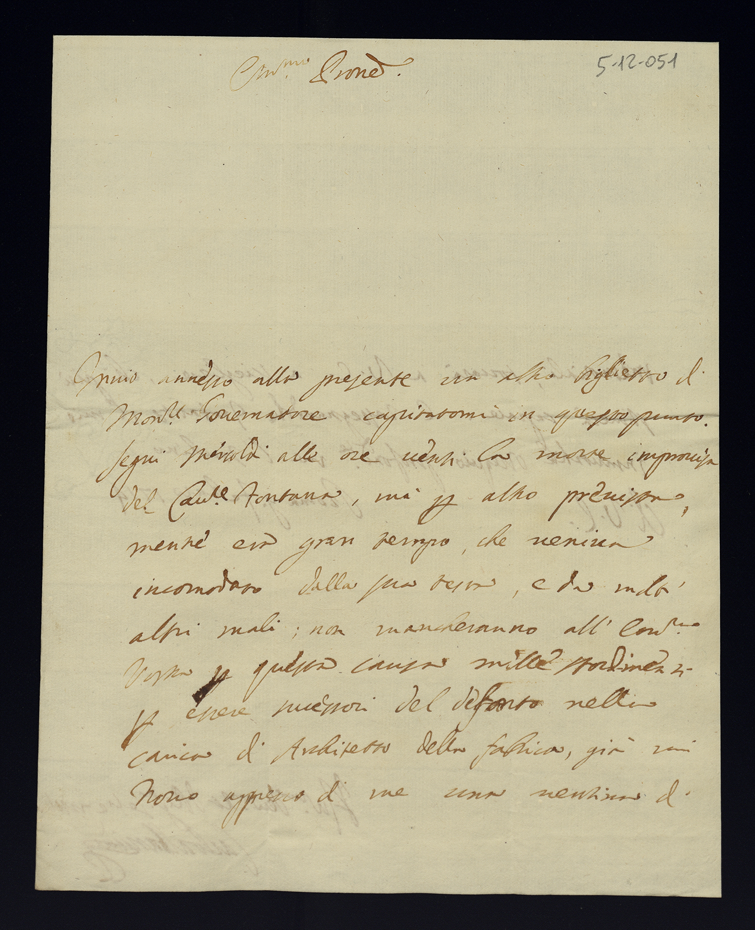 5-12-051
Em.mo Proñe.
Invio annesso alla presente un altro biglietto di
Mons.re Governatore capitatomi in questo punto.
Segui Mercoldi alle ore venti la morte improvisa
del Cav.re Fontana, mà p altro prévista,
mentre era gran tempo, che veniva
incomodato dalla sua testa, e da molti
altri mali; non mancheranno all' Em.za
Vostra p questa causa mille stordimenti
p essere successori del defonto nella
carica di Architetto della fabrica, già mi
trovo appresso di me una ventina di